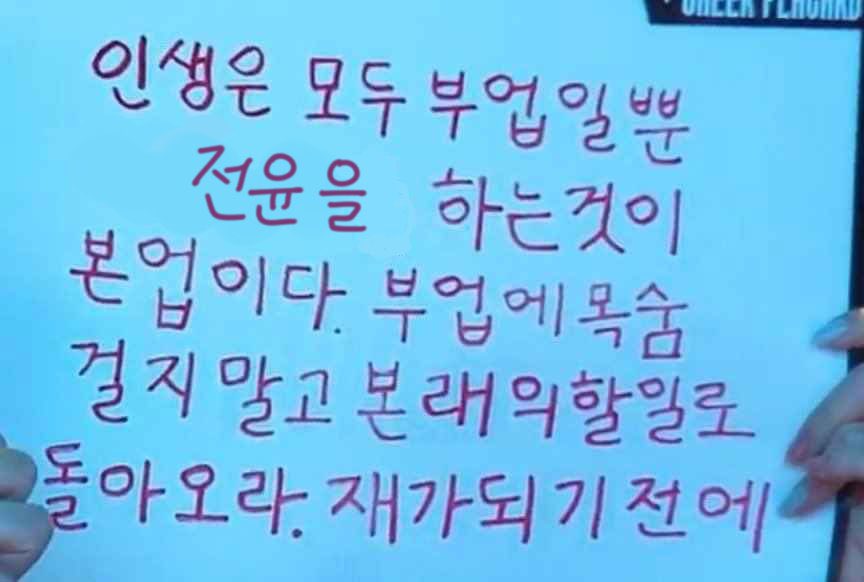 CHEER PLACARD
인생은 모두 부업일뿐
전윤을 하는것이
본업이다. 부업에 목숨
걸지 말고 본래의할일로
돌아오라. 재가되기 전에